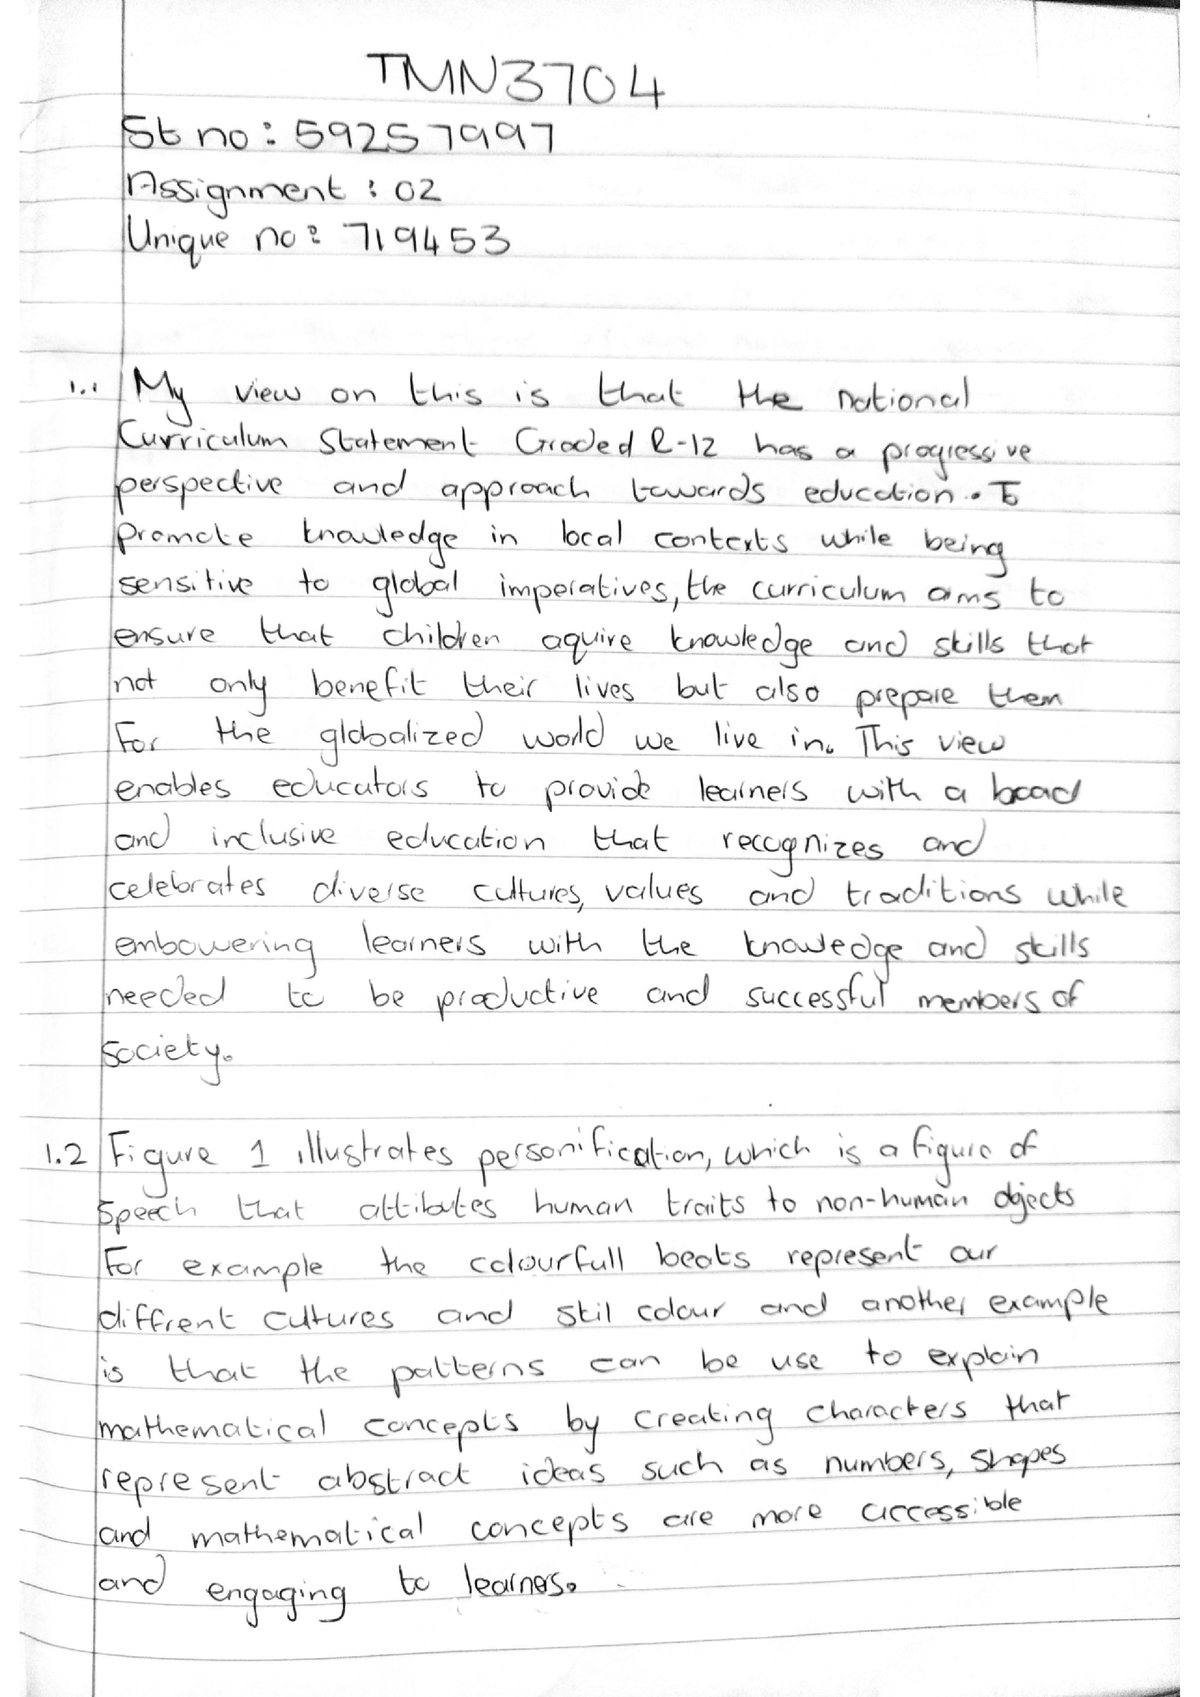 TMN3704
St no: 59257997
Assignment : 02
Unique no: 719453
1.1 My view on this is that the national
Curriculum Statement Graded R-12 has a progressive
perspective and approach towards education. To
promote knowledge in local contexts while being
sensitive to global imperatives, the curriculum aims to
ensure that children aquire knowledge and skills that
not only benefit their lives but also prepare them
For the globalized world we live in. This view
enables educators to provide learners with a broad
and inclusive education that recognizes and
celebrates diverse cultures, values and traditions while
embowering learners with the knowledge and skills
needed to be productive and successful members of
society.
1.2 Figure 1 illustrates personification, which is a figure of
speech that attibutes human traits to non-human objects
For example the colourfull beats represent our
diffrent cultures and skil colour and another example
is that the patterns can be use to explain
mathematical concepts by creating characters that
represent abstract ideas such as numbers, shapes
and mathematical concepts are more accessible
and engaging to learners.